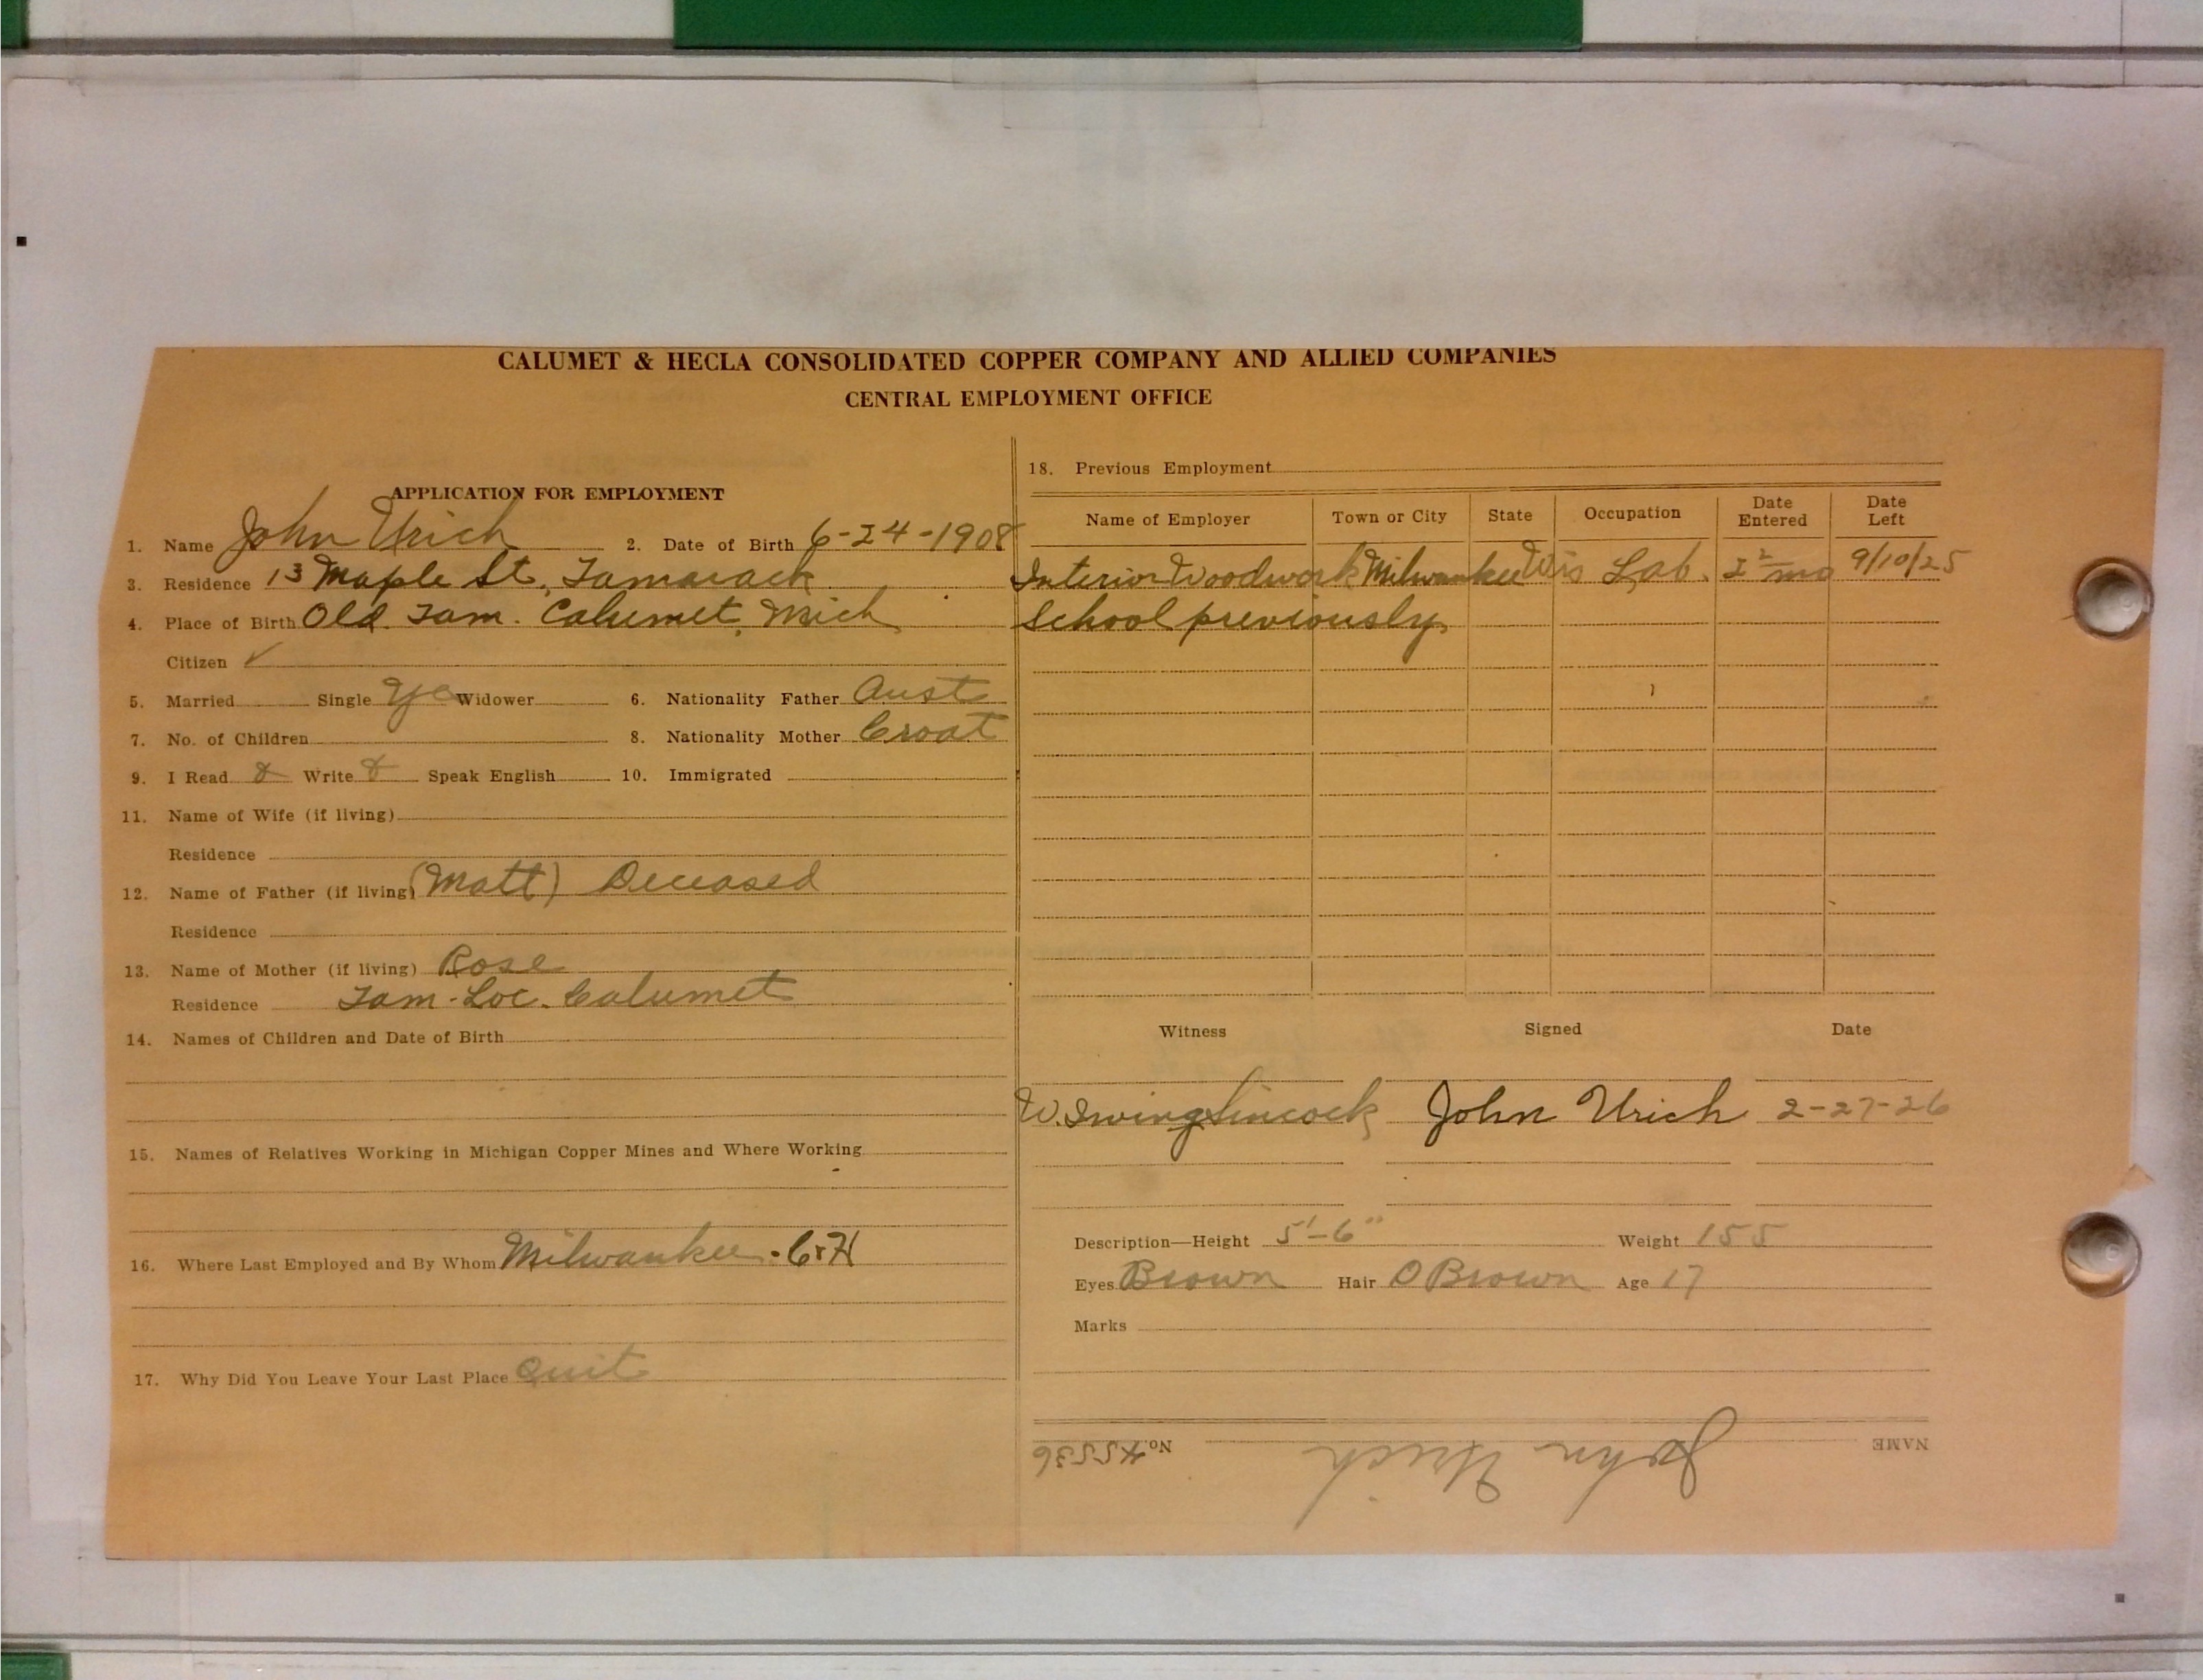 CALUMET & HECLA CONSOLIDATED COPPER COMPANY AND ALLIED COMPANIES
CENTRAL EMPLOYMENT OFFICE
APPLICATION FOR EMPLOYMENT
1. Name John Urich 2. Date of Birth 6-24-1908
3. Residence 13 Maple St., Tamarack
4. Place of Birth Old Tam. Calumet, Mich
Citizen ✓
5. Married Single Ye Widower 6. Nationality Father Aust
7. No. of Children 8. Nationality Mother Croat
9. I Read Write Speak English 10. Immigrated
11. Name of Wife (if living)
Residence
12. Name of Father (if living) (Matt) Deceased
Residence
13. Name of Mother (if living) Rose
Residence Tam. Loc. Calumet
14. Names of Children and Date of Birth
15. Names of Relatives Working in Michigan Copper Mines and Where Working
16. Where Last Employed and By Whom Milwaukee - C&H
17. Why Did You Leave Your Last Place Quit
18. Previous Employment
Name of Employer Town or City State Occupation Date Entered Date Left
Interior Woodwork Milwaukee Wis Lab. mo 9/10/25
School previously
Witness Signed Date
W. Irwing Sincock John Urich 2-27-26
Description—Height 5'-6" Weight 155
Eyes Brown Hair D Brown Age 17
Marks
NAME John Urich No. 45536